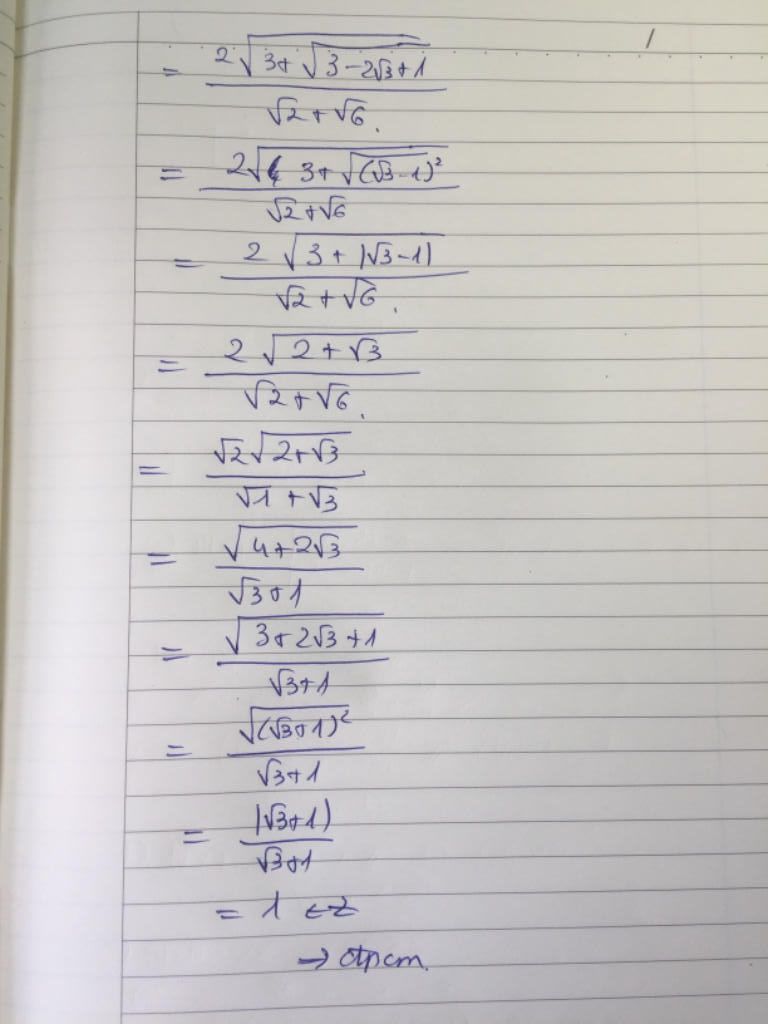 = 2√(3+√(3-2√3+1)) / (√2+√6).
= 2√(3+√((√3-1)²)) / (√2+√6)
= 2√(3+|√3-1|) / (√2+√6).
= 2√(2+√3) / (√2+√6).
= √2√(2+√3) / (√1+√3)
= √(4+2√3) / (√3+1)
= √(3+2√3+1) / (√3+1)
= √((√3+1)²) / (√3+1)
= |√3+1| / (√3+1)
= 1 ∈ Z
→ đpcm.